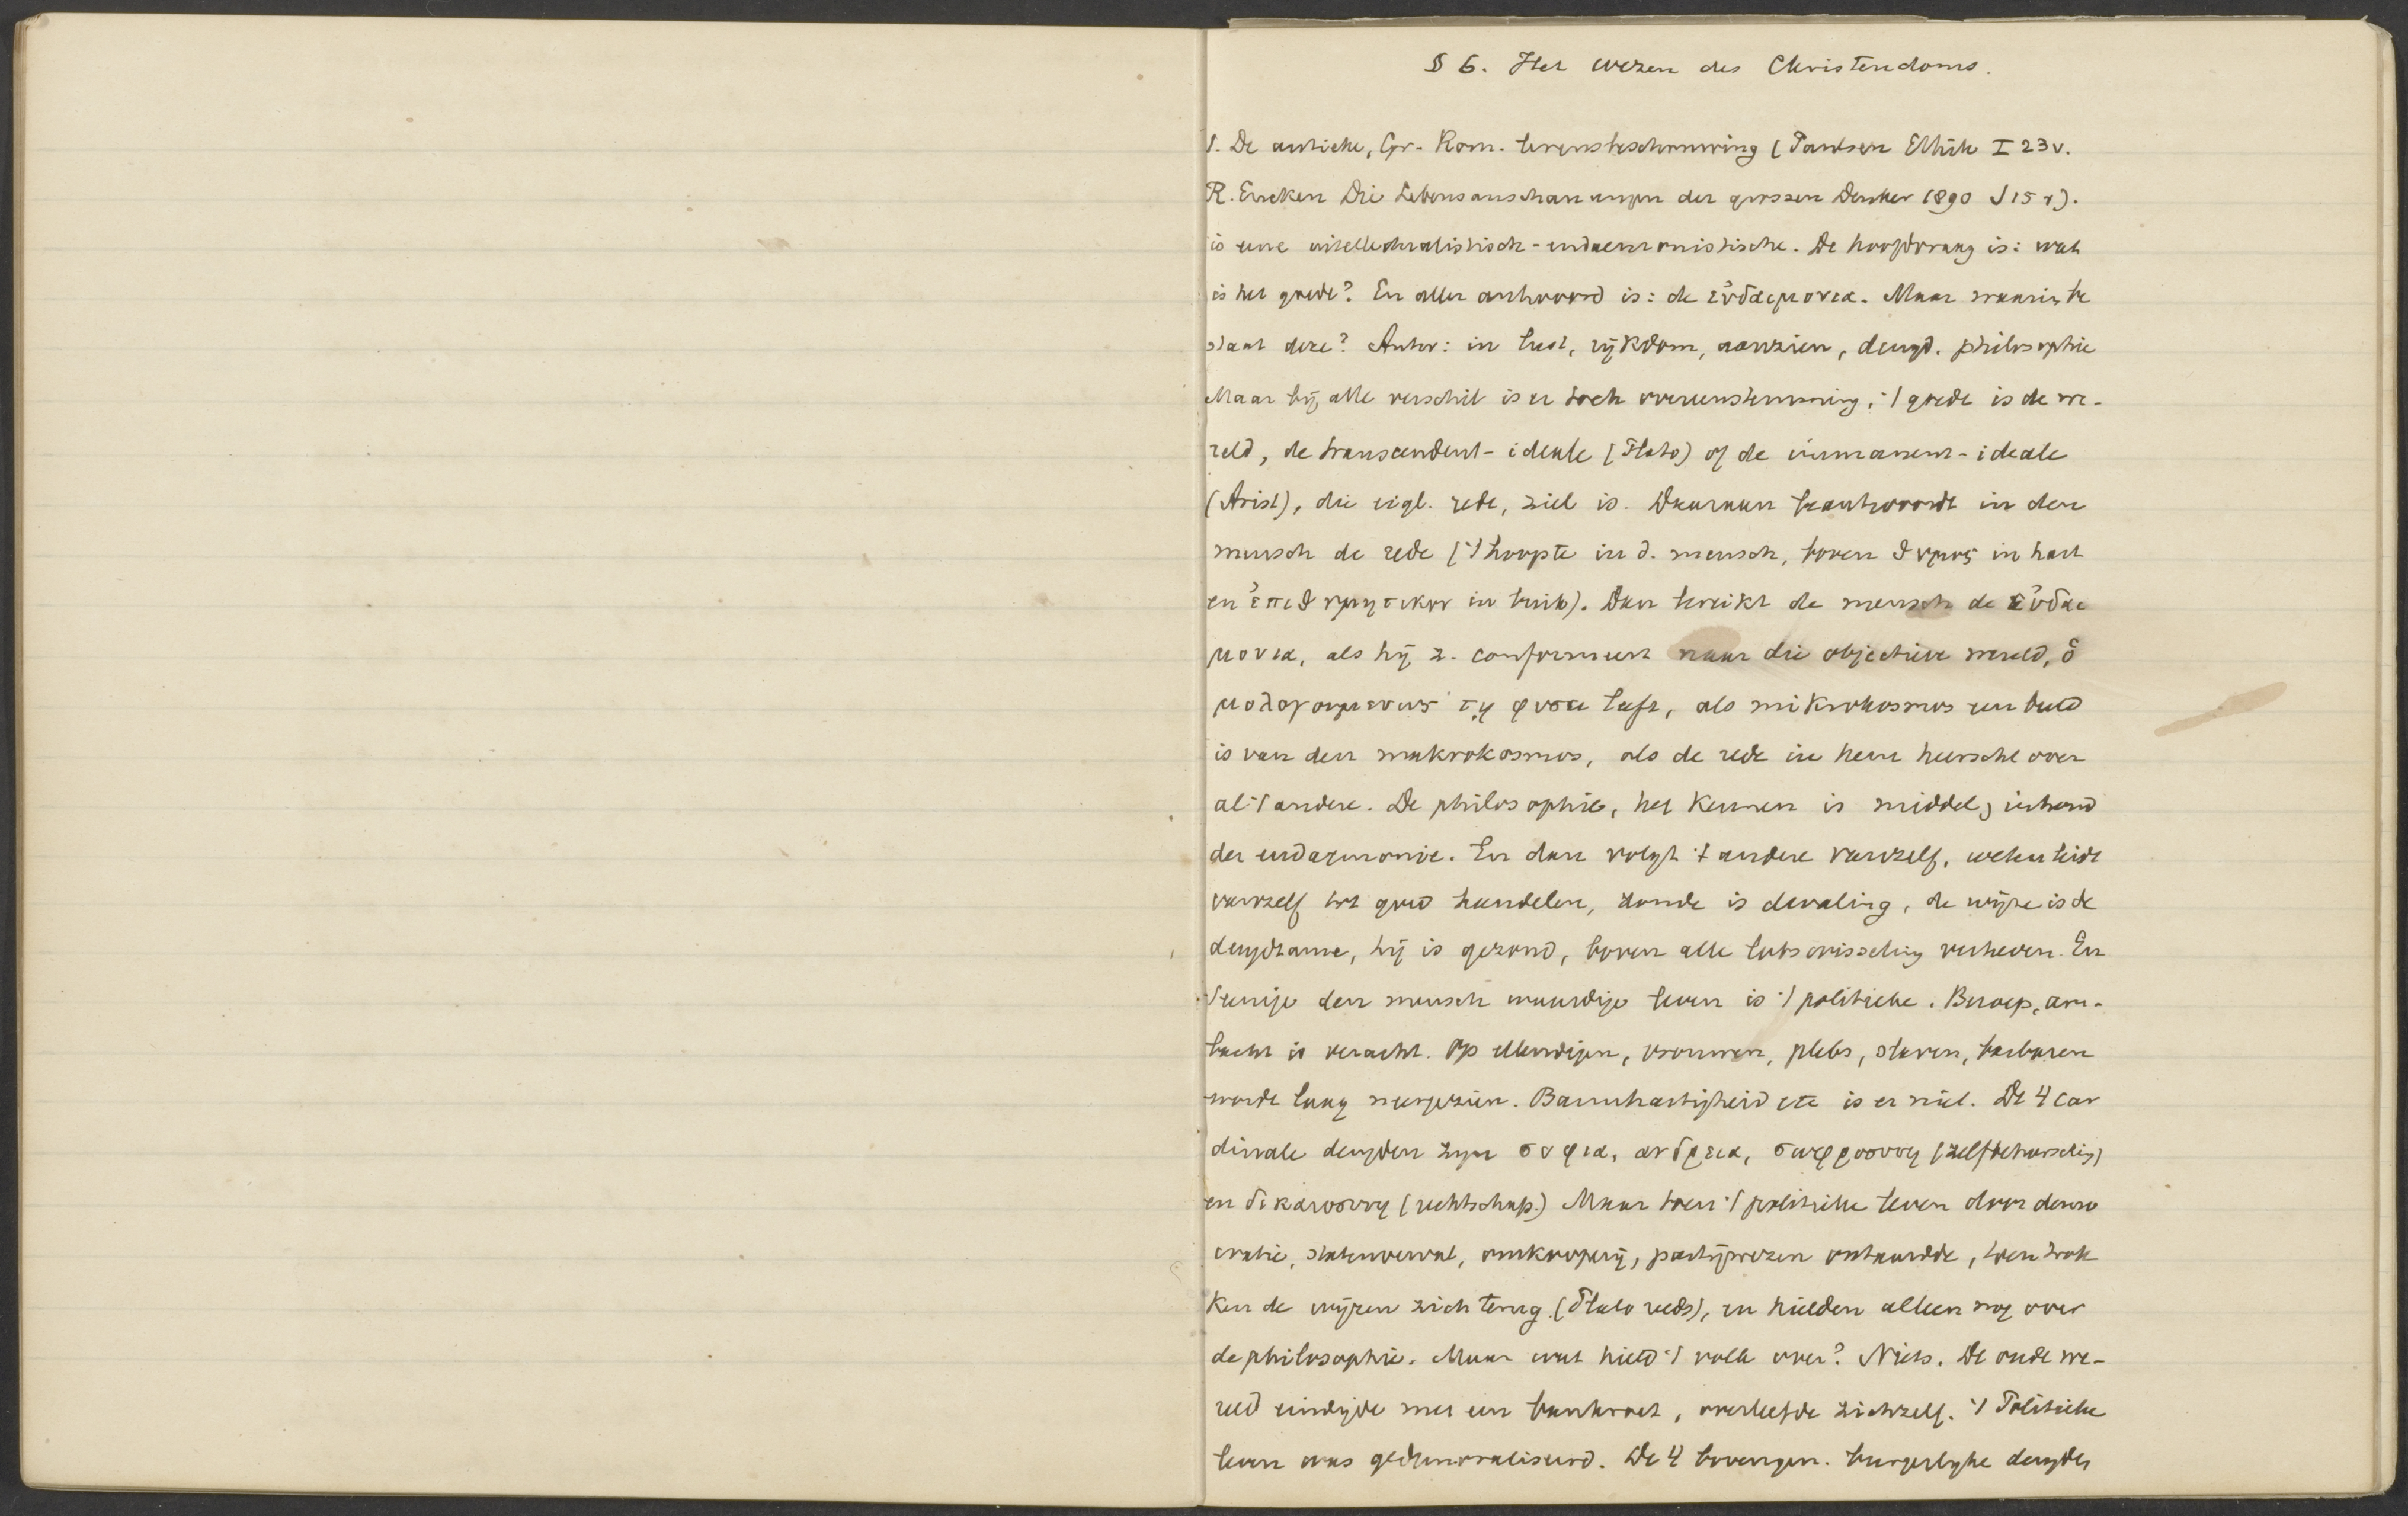 § 6. Het wezen des Christendoms.
1. De antieke, Gr.-Rom. levensbeschouwing (Paulsen Ethik I 23v.
R. Eucken Die Lebensanschauungen der grossen Denker 1890 S 15 v).
is eene intellectualistisch-eudaemonistische. De hoofdvraag is: wat
is het goede? En aller antwoord is: de εὐδαιμονια. Maar waarin be
staat deze? Antw: in lust, rijkdom, aanzien, deugd. philosophie
Maar bij alle verschil is er toch overeenstemming, 't goede is de we-
reld, de transcendent-ideale (Plato) of de immanent-ideale
(Arist), die eigl. rede, ziel is. Daaraan beantwoordt in den
mensch de rede ('t hoogste in d. mensch, boven θυμος in hart
en ἐπιθυμητικον in buik). Dan bereikt de mensch de εὐδαι
μονια, als hij z. conformeert naar die objectieve wereld, ὁ
μολογουμενως τῃ φυσει leeft, als mikrokosmos een beeld
is van den makrokosmos, als de rede in hem heerscht over
al 't andere. De philosophie, het kennen is middel, inhoud
der eudaemonie. En dan volgt 't andere vanzelf, weten leidt
vanzelf tot goed handelen, zonde is dwaling, de wijze is de
deugdzame, hij is gezond, boven alle lotswisseling verheven. En
't eenige den mensch waardige leven is 't politieke. Beroep, am-
bacht is veracht. Op ellendigen, vrouwen, plebs, slaven, barbaren
wordt laag neergezien. Barmhartigheid etc is er niet. De 4 car
dinale deugden zijn σοφια, ανδρεια, σωφροσυνη (zelfbeheersching)
en δικαιοσυνη (rechtschap.) Maar toen 't politieke leven door demo
cratie, statenverval, omkooperij, partijwezen ontaardde, toen trok
ken de wijzen zich terug (Plato reeds), en hielden alleen nog over
de philosophie. Maar wat hield 't volk over? Niets. De oude we-
reld eindigde met een bankroet, overleefde zichzelf. 't Politieke
leven was gedemoraliseerd. De 4 bovengen. burgerlijke deugden